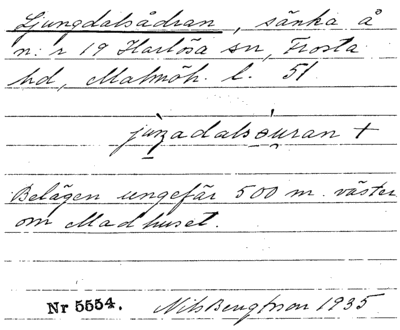 Ljungdalsådran, sänka å
n:r 19 Harlösa sn, Frosta
hd, Malmöh. l. 51
Belägen ungefär 500 m. väster
om Madhuset.
Nr 5554. Nils Bengtsson 1935